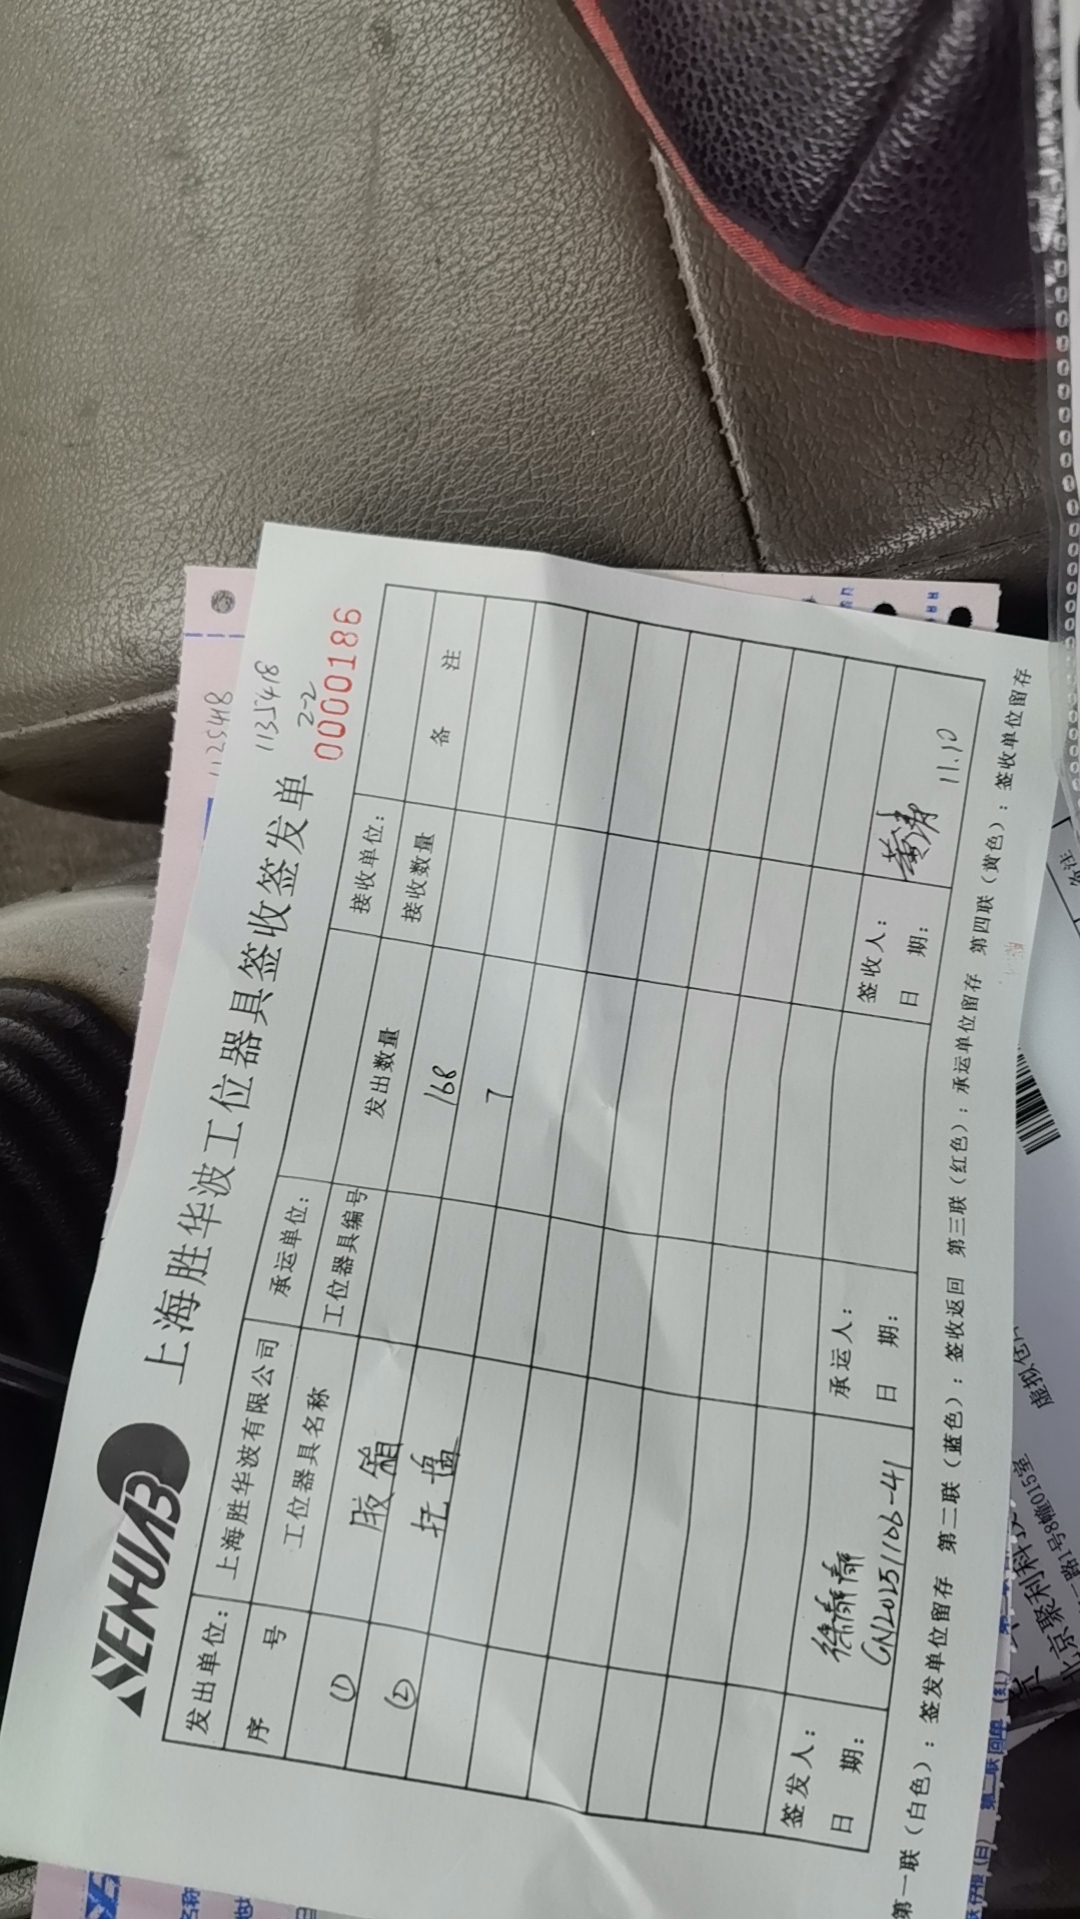 1125418
1135418
2-2
SENHUAB
上海胜华波工位器具签收签发单
0000186
发出单位: 上海胜华波有限公司 承运单位: 接收单位:
序号 工位器具名称 工位器具编号 发出数量 接收数量 备注
① 胶箱 168
② 托盘 7
签发人: 徐静静 承运人: 签收人: 黄涛
日期: GN20251106-41 日期: 日期: 11.10
第一联（白色）: 签发单位留存 第二联（蓝色）: 签收返回 第三联（红色）: 承运单位留存 第四联（黄色）: 签收单位留存
虚拟仓
北京聚利科
路1号8幢015室